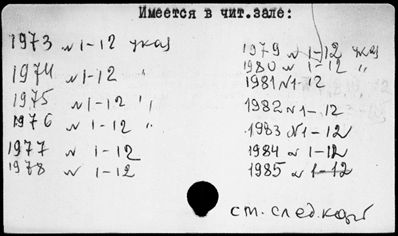 Имеется в чит.зале:
1973 N 1-12 указ
1974 N 1-12 "
1975 N 1-12 "
1976 N 1-12 "
1977 N 1-12
1978 N 1-12
1979 N 1-12 указ
1980 N 1-12 "
1981 N 1-12
1982 N 1-12
1983 N 1-12
1984 N 1-12
1985 N 1-12
см. след.